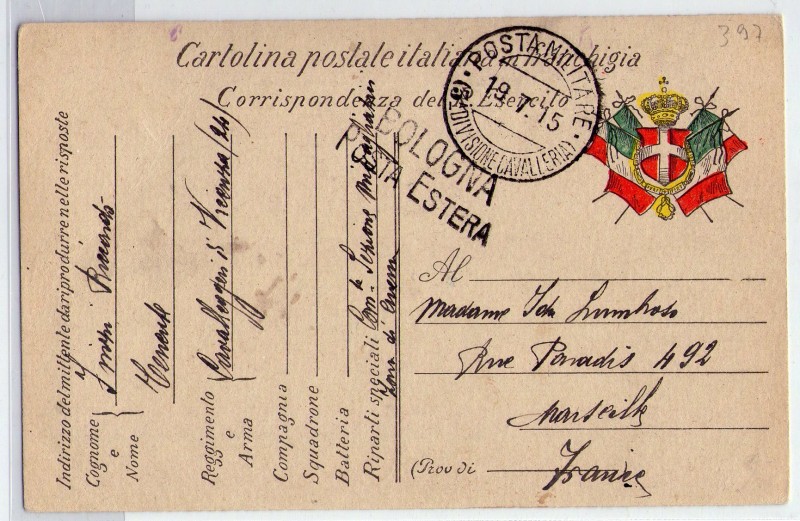 397
Cartolina postale italiana in franchigia
Corrispondenza dell'Esercito
POSTA MILITARE
19.V.15
(DIVISIONE CAVALLERIA)
BOLOGNA
POSTA ESTERA
Al
Madame Ida Lumbroso
Rue Paradis 492
Marseille
(Prov di
France
Indirizzo del mittente da riprodurre nelle risposte
Cognome e Nome
Tenente
Reggimento e Arma
Cavalleggeri di Vicenza (24)
Compagnia
Squadrone
Batteria
Riparti speciali
Sezione Mitragliatrici